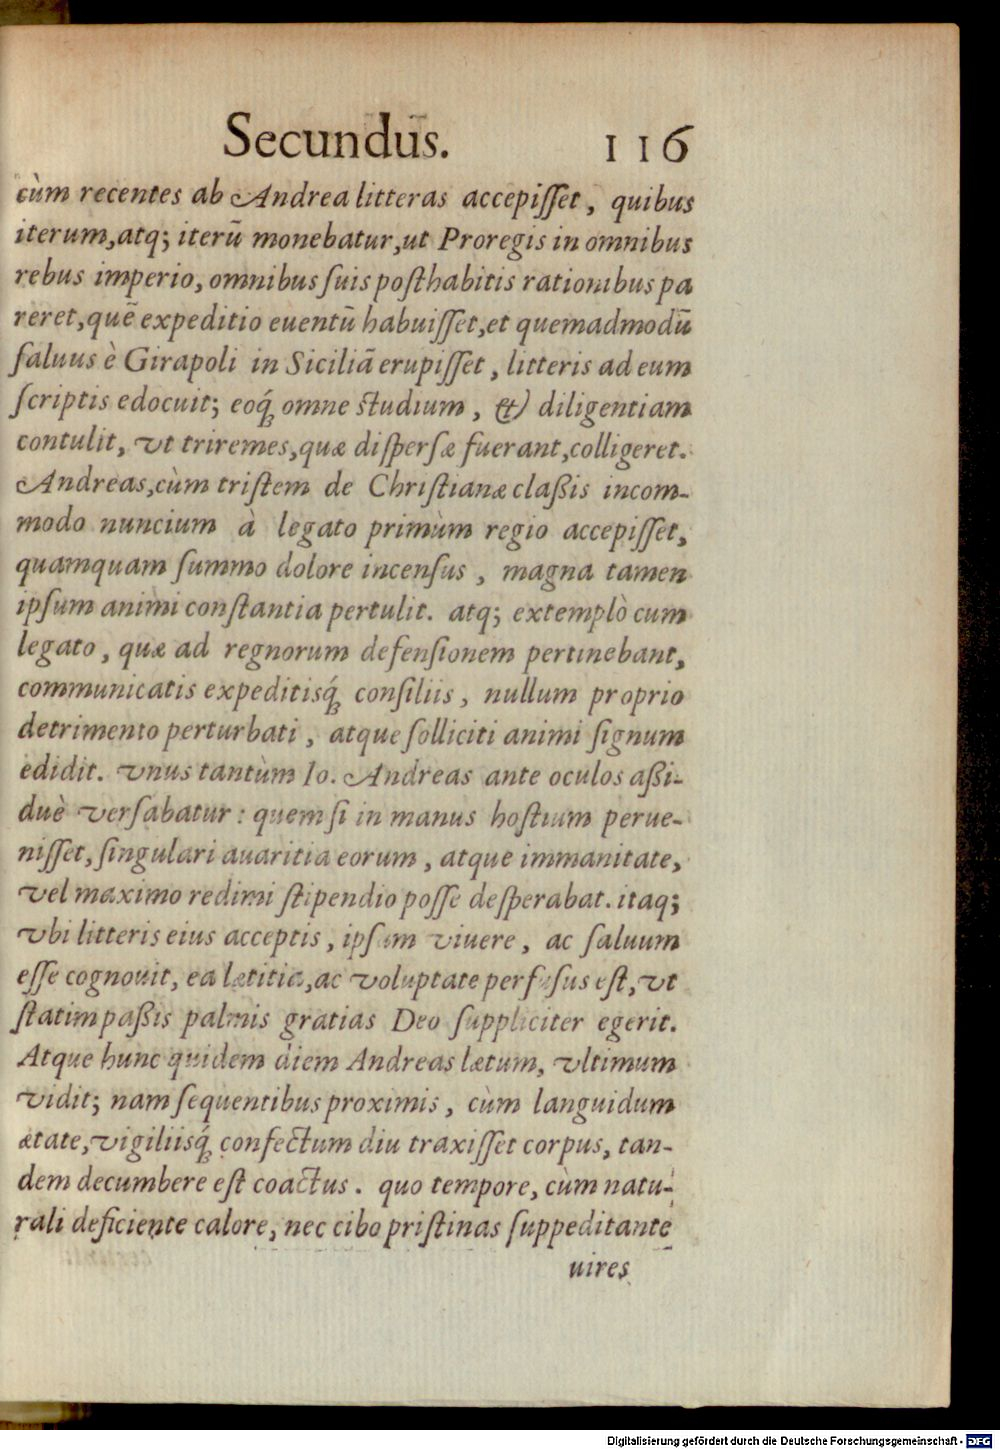 Secundus. 116
cùm recentes ab Andrea litteras accepiſſet, quibus
iterum, atq; iterū monebatur, ut Proregis in omnibus
rebus imperio, omnibus ſuis poſthabitis rationibus pa
reret, quē expeditio euentū habuiſſet, et quemadmodū
ſaluus è Girapoli in Siciliā erupiſſet, litteris ad eum
ſcriptis edocuit; eoq́; omne ſtudium, & diligentiam
contulit, vt triremes, quæ diſperſæ fuerant, colligeret.
Andreas, cùm triſtem de Chriſtianæ claßis incom-
modo nuncium à legato primùm regio accepiſſet,
quamquam ſummo dolore incenſus, magna tamen
ipſum animi conſtantia pertulit. atq; extemplò cum
legato, quæ ad regnorum defenſionem pertinebant,
communicatis expeditisq́; conſiliis, nullum proprio
detrimento perturbati, atque ſolliciti animi ſignum
edidit. vnus tantùm Io. Andreas ante oculos aßi-
duè verſabatur: quem ſi in manus hoſtium perue-
niſſet, ſingulari auaritia eorum, atque immanitate,
vel maximo redimi ſtipendio poſſe deſperabat. itaq;
vbi litteris eius acceptis, ipſum viuere, ac ſaluum
eſſe cognouit, ea lætitia, ac voluptate perfuſus eſt, vt
ſtatim paßis palmis gratias Deo ſuppliciter egerit.
Atque hunc quidem diem Andreas lætum, vltimum
vidit; nam ſequentibus proximis, cùm languidum
ætate, vigiliisq́; confectum diu traxiſſet corpus, tan-
dem decumbere eſt coactus. quo tempore, cùm natu-
rali deficiente calore, nec cibo priſtinas ſuppeditante
uires
Digitalisierung gefördert durch die Deutsche Forschungsgemeinschaft - DFG